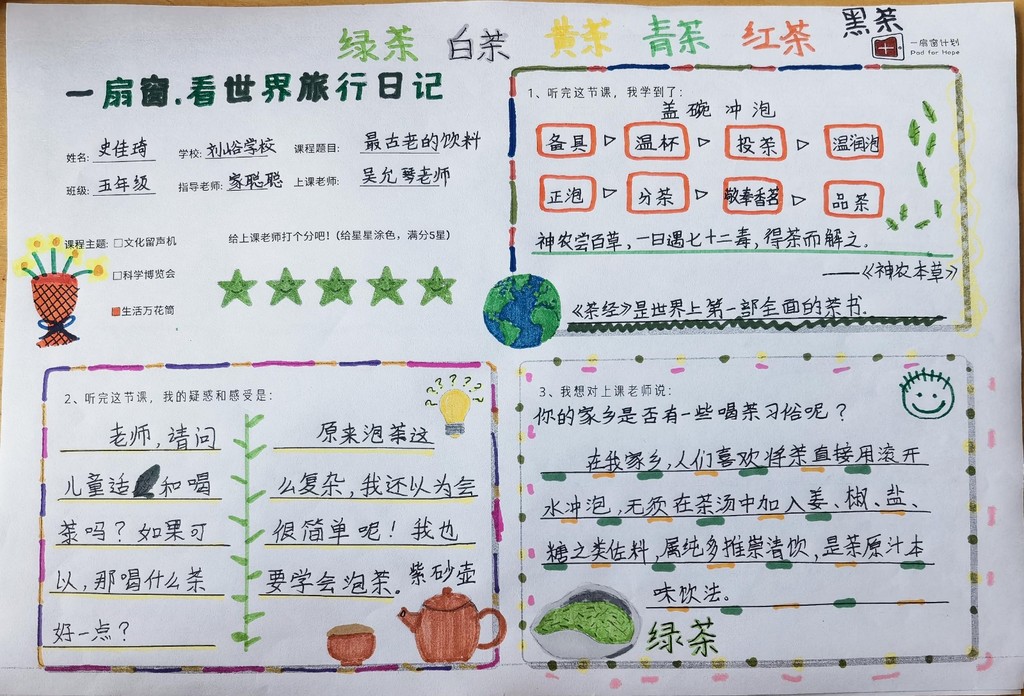 绿茶 白茶 黄茶 青茶 红茶 黑茶
一扇窗计划
Pad for Hope
一扇窗.看世界旅行日记
姓名: 史佳琦 学校: 刘峪学校 课程题目: 最古老的饮料
班级: 五年级 指导老师: 家聪聪 上课老师: 吴允琴老师
课程主题: □文化留声机
□科学博览会
■生活万花筒
给上课老师打个分吧!(给星星涂色,满分5星)
1、听完这节课,我学到了:
盖碗冲泡
备具 ▷ 温杯 ▷ 投茶 ▷ 温润泡
正泡 ▷ 分茶 ▷ 敬奉香茗 ▷ 品茶
神农尝百草,一日遇七十二毒,得茶而解之。
——《神农本草》
《茶经》是世界上第一部全面的茶书.
2、听完这节课,我的疑惑和感受是:
老师,请问
儿童适 和喝
茶吗?如果可
以,那喝什么茶
好一点?
原来泡茶这
么复杂,我还以为会
很简单呢!我也
要学会泡茶.
紫砂壶
3、我想对上课老师说:
你的家乡是否有一些喝茶习俗呢?
在我家乡,人们喜欢将茶直接用滚开
水冲泡,无须在茶汤中加入姜、椒、盐、
糖之类佐料,属纯多推崇清饮,是茶原汁本
味饮法。
绿茶